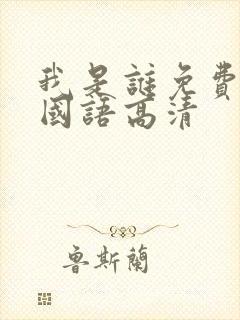 我是誰免費
國語高清
魯斯蘭